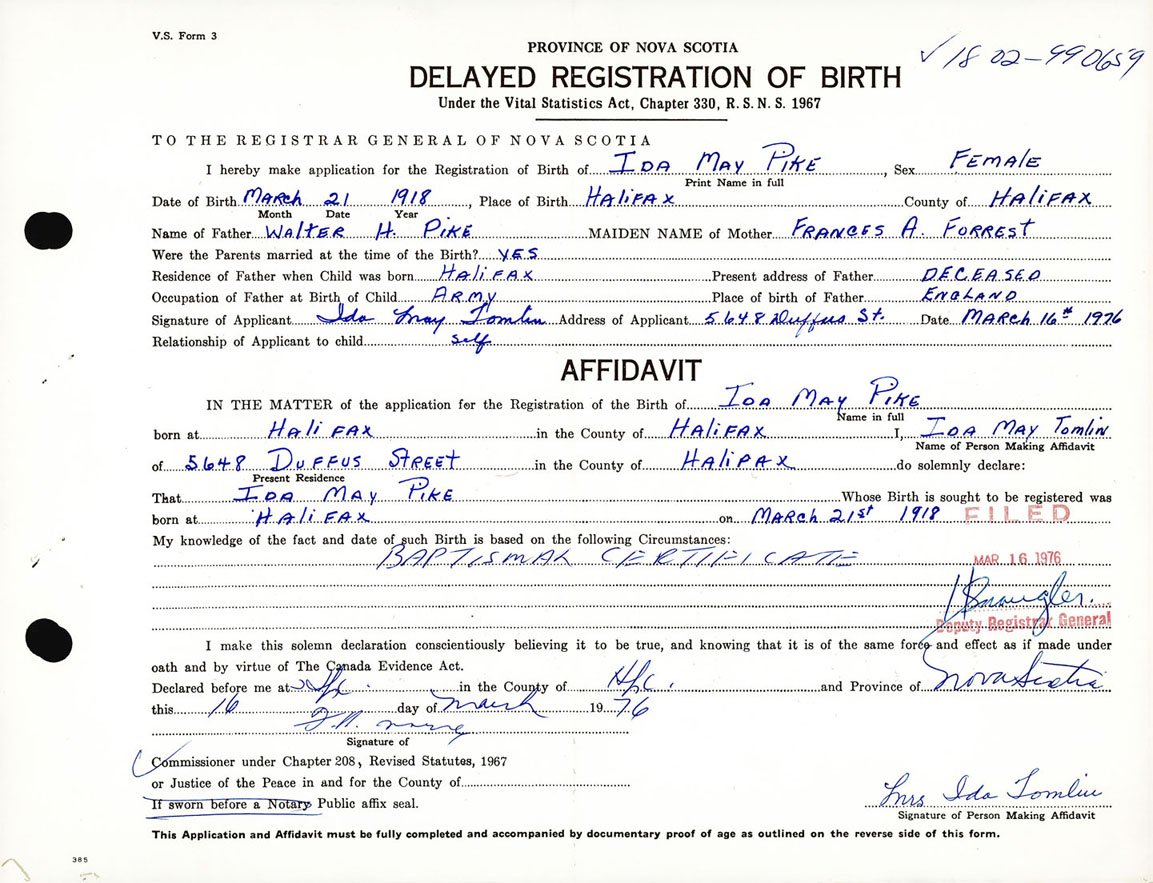 V.S. Form 3
PROVINCE OF NOVA SCOTIA
✓ 18 02-990659
DELAYED REGISTRATION OF BIRTH
Under the Vital Statistics Act, Chapter 330, R. S. N. S. 1967
TO THE REGISTRAR GENERAL OF NOVA SCOTIA
I hereby make application for the Registration of Birth of IDA MAY PIKE, Sex FEMALE
Print Name in full
Date of Birth MARCH 21 1918, Place of Birth HALIFAX County of HALIFAX
Month Date Year
Name of Father WALTER H. PIKE MAIDEN NAME of Mother FRANCES A. FORREST
Were the Parents married at the time of the Birth? YES
Residence of Father when Child was born HALIFAX Present address of Father DECEASED
Occupation of Father at Birth of Child ARMY Place of birth of Father ENGLAND
Signature of Applicant Ida May Tomlin Address of Applicant 5648 Duffus St. Date MARCH 16th 1976
Relationship of Applicant to child self
AFFIDAVIT
IN THE MATTER of the application for the Registration of the Birth of IDA MAY PIKE
Name in full
born at HALIFAX in the County of HALIFAX I, IDA MAY TOMLIN
Name of Person Making Affidavit
of 5648 DUFFUS STREET in the County of HALIFAX do solemnly declare:
Present Residence
That IDA MAY PIKE Whose Birth is sought to be registered was
born at HALIFAX on MARCH 21st 1918 FILED
My knowledge of the fact and date of such Birth is based on the following Circumstances:
BAPTISMAL CERTIFICATE MAR 16 1976
Deputy Registrar General
I make this solemn declaration conscientiously believing it to be true, and knowing that it is of the same force and effect as if made under
oath and by virtue of The Canada Evidence Act.
Declared before me at Hfx. in the County of Hfx. and Province of Nova Scotia
this 16 day of March 1976
Signature of
Commissioner under Chapter 208, Revised Statutes, 1967
or Justice of the Peace in and for the County of
If sworn before a Notary Public affix seal.
Mrs Ida Tomlin
Signature of Person Making Affidavit
This Application and Affidavit must be fully completed and accompanied by documentary proof of age as outlined on the reverse side of this form.
385